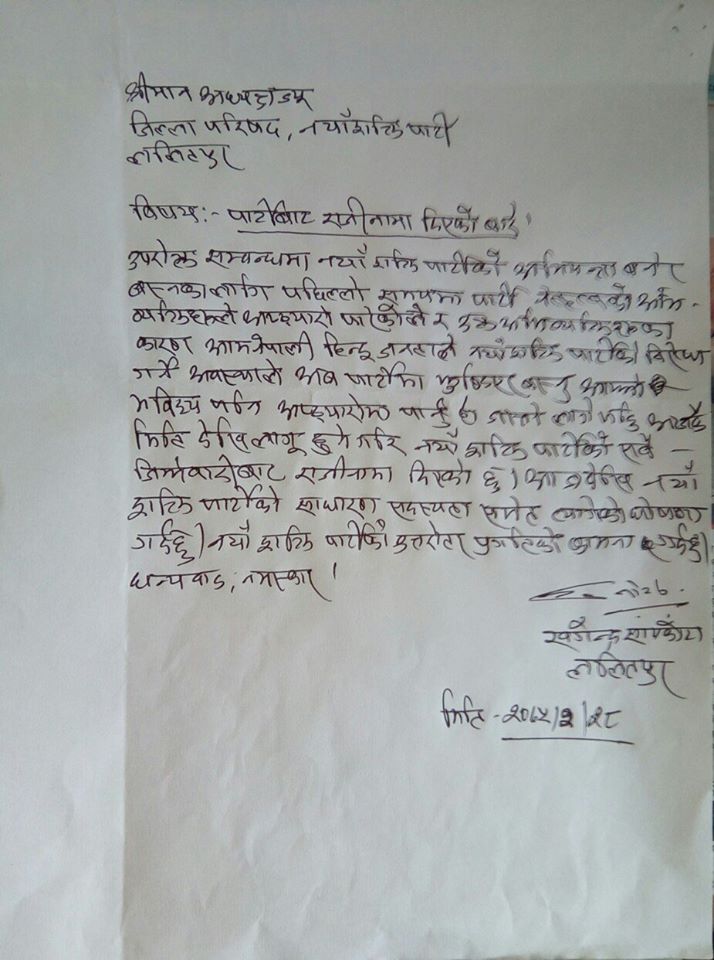 श्रीमान अध्यक्षज्यू
जिल्ला परिषद, नयाँ शक्ति पार्टी
ललितपुर
विषय:- पार्टीबाट राजीनामा दिएको बारे ।
उपरोक्त सम्बन्धमा नयाँ शक्ति पार्टीको अभियन्ता बनेर
बस्नका लागि पछिल्लो समयमा पार्टी नेतृत्वको अभि-
व्यक्तिहरुले अप्ठ्यारो पारेकोले र उक्त अभिव्यक्तिहरुका
कारण आम नेपाली हिन्दु जनताले नयाँ शक्ति पार्टीको विरोध
गर्ने अवस्थाले अब पार्टीमा बस्नु आफ्नो
भविष्य प्रति अप्ठ्यारोमा पार्नु हो जस्तो लागे पछि आजकै
मिति देखि लागू हुने गरि नयाँ शक्ति पार्टीको सबै –
जिम्मेवारीबाट राजीनामा दिएको छु । आज देखि नयाँ
शक्ति पार्टीको साधारण सदस्यता समेत त्यागेको घोषणा
गर्दछु । नयाँ शक्ति पार्टीको उत्तरोत्तर प्रगतिको कामना गर्दछु ।
धन्यवाद, नमस्कार ।
खगेन्द्र सापकोटा
ललितपुर
मिति - २०७५/२/२८